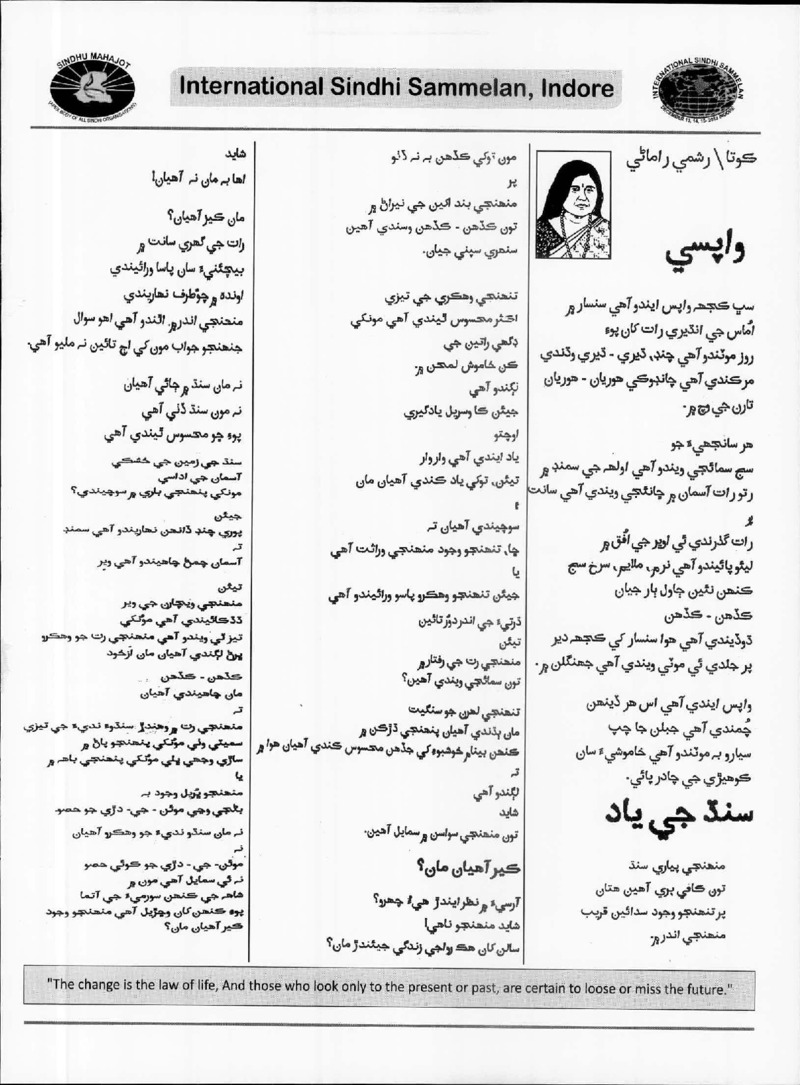 SINDHU MAHAJOT
INTERNATIONAL SINDHI SAMMELAN
International Sindhi Sammelan, Indore
ڪوتا \ رشمي راماڻي
واپسي
سڀ ڪجهہ واپس ايندو آهي سنسار ۾
اُماس جي انڌيري رات کان پوءِ
روز موٽندو آهي چنڊ، ڌيري - ڌيري وڌندي
مرڪندي آهي چانڊوڪي هوريان - هوريان
تارن جي وچ ۾.
هر سانجهيءَ جو
سج سمائجي ويندو آهي اولهہ جي سمنڊ ۾
رتو رات آسمان ۾ ڇانئجي ويندي آهي سانت
۽
رات گذرندي ئي اوڀر جي اُفق ۾
ليئو پائيندو آهي نرم، ملايم، سرخ سج
ڪنهن نئين ڄاول ٻار جيان
ڪڏهن - ڪڏهن
ڏوڏيندي آهي هوا سنسار کي ڪجهہ دير
پر جلدي ئي موٽي ويندي آهي جهنگلن ۾.
واپس ايندي آهي اس هر ڏينهن
چُمندي آهي جبلن جا چپ
سيارو بہ موٽندو آهي خاموشيءَ سان
ڪوهيڙي جي چادر پائي.
سنڌ جي ياد
منهنجي پياري سنڌ
تون ڪافي پري آهين هتان
پر تنهنجو وجود سدائين قريب
منهنجي اندر ۾.
مون توکي ڪڏهن بہ نہ ڏٺو
پر
منهنجي بند اکين جي نيراڻ ۾
تون ڪڏهن - ڪڏهن وسندي آهين
سنهري سپني جيان.
تنهنجي وهڪري جي تيزي
اڪثر محسوس ٿيندي آهي مونکي
ڊگهي راتين جي
ڪن خاموش لمحن ۾.
لڳندو آهي
جيئن ڪا وسريل يادگيري
اوچتو
ياد ايندي آهي وار وار
تيئن، توکي ياد ڪندي آهيان مان
۽
سوچيندي آهيان تہ
ڇا، تنهنجو وجود منهنجي وراثت آهي
يا
جيئن تنهنجو وهڪرو پاسو ورائيندو آهي
ڌرتيءَ جي اندر دوُر تائين
تيئن
منهنجي رت جي رفتار ۾
تون سمائجي ويندي آهين؟
تنهنجي لهرن جو سنگيت
مان ٻڌندي آهيان پنهنجي ڌڙڪن ۾
ڪنهن بينام خوشبوءِ کي جڏهن محسوس ڪندي آهيان هوا ۾
تہ
لڳندو آهي
شايد
تون منهنجي سواسن ۾ سمايل آهين.
ڪير آهيان مان؟
آرسيءَ ۾ نظر ايندڙ هيءُ چهرو؟
شايد منهنجو ناهي!
سالن کان هڪ رواجي زندگي جيئندڙ مان؟
شايد
اها بہ مان نہ آهيان!
مان ڪير آهيان؟
رات جي گهري سانت ۾
بيچئنيءَ سان پاسا ورائيندي
اونده ۾ چؤطرف نهاريندي
منهنجي اندر ۾ اٿندو آهي اهو سوال
جنهنجو جواب مون کي اڄ تائين نہ مليو آهي.
نہ مان سنڌ ۾ ڄائي آهيان
نہ مون سنڌ ڏٺي آهي
پوءِ ڇو محسوس ٿيندي آهي
سنڌ جي زمين جي خشڪي
آسمان جي اداسي
مونکي پنهنجي باري ۾ سوچيندي؟
جيئن
پوري چنڊ ڏانهن نهاريندو آهي سمنڊ
تہ
آسمان چمڻ چاهيندو آهي وير
تيئن
منهنجي ويچارن جي وير
ڌڌڪائيندي آهي مونکي
تيز ٿي ويندو آهي منهنجي رت جو وهڪرو
ڀرڻ لڳندي آهيان مان ازخود
ڪڏهن - ڪڏهن
مان چاهيندي آهيان
تہ
منهنجي رت ۾ وهندڙ سنڌوءَ نديءَ جي تيزي
سميٽي وٺي مونکي پنهنجو پاڻ ۾
ساڙي وجهي ڀلي مونکي پنهنجي باهہ ۾
يا
منهنجو ڀُريل وجود بہ
بڻجي وڃي موئن - جي - دڙي جو حصو.
نہ مان سنڌو نديءَ جو وهڪرو آهيان
نہ
موئن - جي - دڙي جو ڪوئي حصو
نہ ئي سمايل آهي مون ۾
شاهہ جي ڪنهن سورميءَ جي آتما
پوءِ ڪنهن کان وڇڙيل آهي منهنجو وجود
ڪير آهيان مان؟
"The change is the law of life, And those who look only to the present or past, are certain to loose or miss the future."